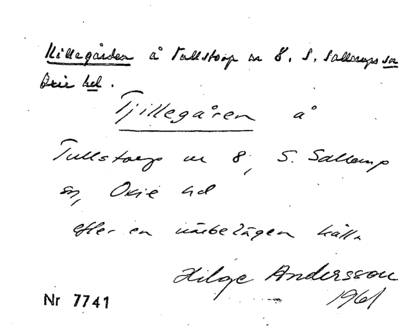 Killegården å Tullstorp nr 8, S. Sallerups sn
Oxie hd.
Tjillegåren å
Tullstorp nr 8, S. Sallerup
sn, Oxie hd
efter en närbelägen källa
Helge Andersson
1961
Nr 7741